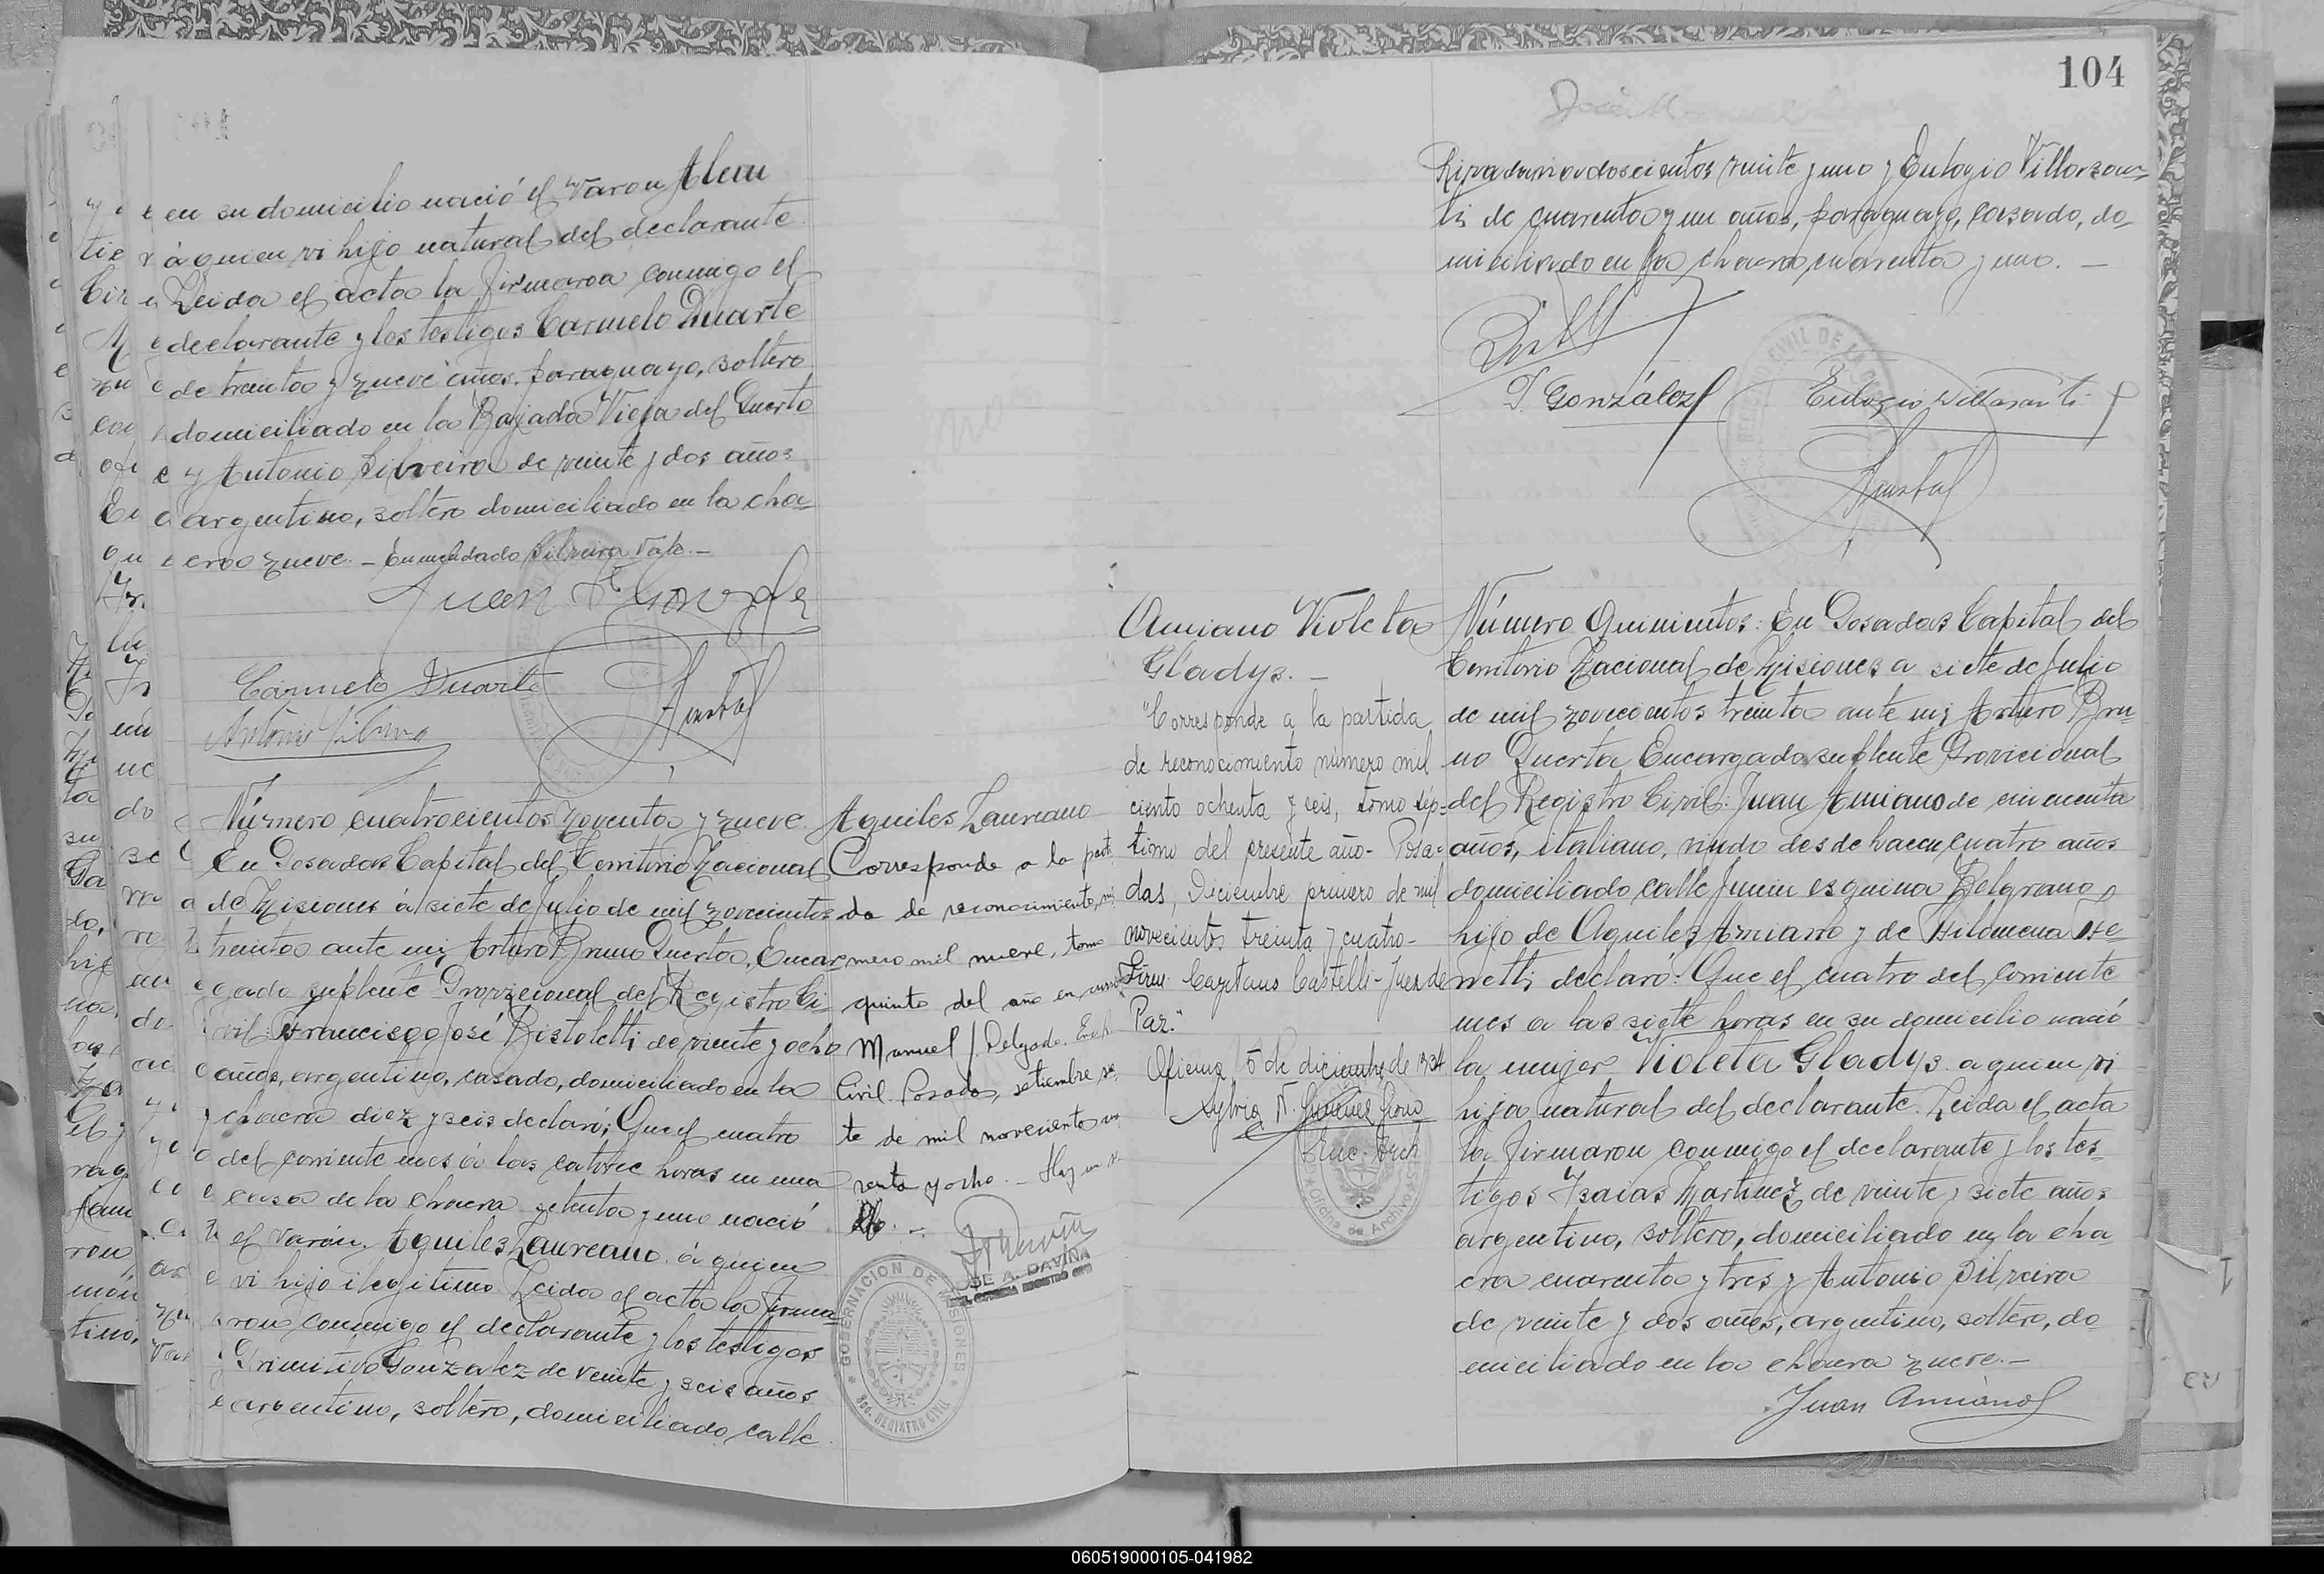 en su domicilio nació el varon Alem
á quien vi hijo natural del declarante
Leida el acta la firmaron conmigo el
declarante y los testigos Carmelo Duarte
de treinta y nueve años, paraguayo, soltero
domiciliado en la Bajada Vieja del Puerto
y Antonio Silveira de veinte y dos años
argentino, soltero domiciliado en la cha-
cra nueve. — Enmendado Silveira Vale. —
Juan
Carmelo Duarte
Antonio Silveira
Número cuatrocientos noventa y nueve.
En Posadas Capital del Territorio Nacional
de Misiones á siete de Julio de mil novecientos
treinta ante mi, Arturo Bruno Puerta, Encar-
gado suplente Provicional del Registro Ci-
vil: Francisco José Bistoletti de veinte y ocho
años, argentino, casado, domiciliado en la
chacra diez y seis declaró: Que el cuatro
del corriente mes á las catorce horas en una
casa de la chacra setenta y uno nació
el varón Aquiles Laureano á quien
vi hijo ilegitimo. Leida el acta la firma-
ron conmigo el declarante y los testigos
Primitivo Gonzalez de veinte y seis años
argentino, soltero, domiciliado calle
Aquiles Laureano
Corresponde a la parti
da de reconocimiento, nú
mero mil nueve, tomo
quinto del año en curso
Manuel J. Delgado. Enc.
Civil. Posadas, setiembre
te de mil novecientos
renta y ocho. — Hay un
llo. —
JOSE A. DAVIÑA
GOBERNACION DE MISIONES
SEC. REGISTRO CIVIL
104
Rivadavia doscientos veinte y uno y Eulogio Villarzan-
ti de cuarenta y un años, paraguayo, casado, do-
miciliado en la chacra cuarenta y uno. —
P. González
Eulogio Villasanti
Amiano Violeta
Gladys. —
"Corresponde a la partida
de reconocimiento número mil
ciento ochenta y seis, tomo sép-
timo del presente año - Posa-
das, Diciembre primero de mil
novecientos treinta y cuatro -
Firm: Cayetano Castelli - Juez de
Paz."
Oficina, 5 de diciembre de 1934.
Enc. Arch
Oficina de Archivo
Número Quinientos: En Posadas Capital del
Territorio Nacional de Misiones a siete de Julio
de mil novecientos treinta ante mi, Arturo Bru-
no Puerta Encargado suplente Provicional
del Registro Civil: Juan Amiano de cincuenta
años, italiano, viudo desde hacen cuatro años
domiciliado calle Junin esquina Belgrano,
hijo de Aquiles Amiano y de Filomena Fe-
netti declaró: Que el cuatro del corriente
mes a las siete horas en su domicilio nació
la mujer Violeta Gladys a quien vi
hija natural del declarante. Leida el acta
la firmaron conmigo el declarante y los tes-
tigos Isaias Martinez de veinte y siete años
argentino, soltero, domiciliado en la cha-
cra cuarenta y tres y Antonio Silveira
de veinte y dos años, argentino, soltero, do-
miciliado en la chacra nueve. —
Juan Amiano
060519000105-041982